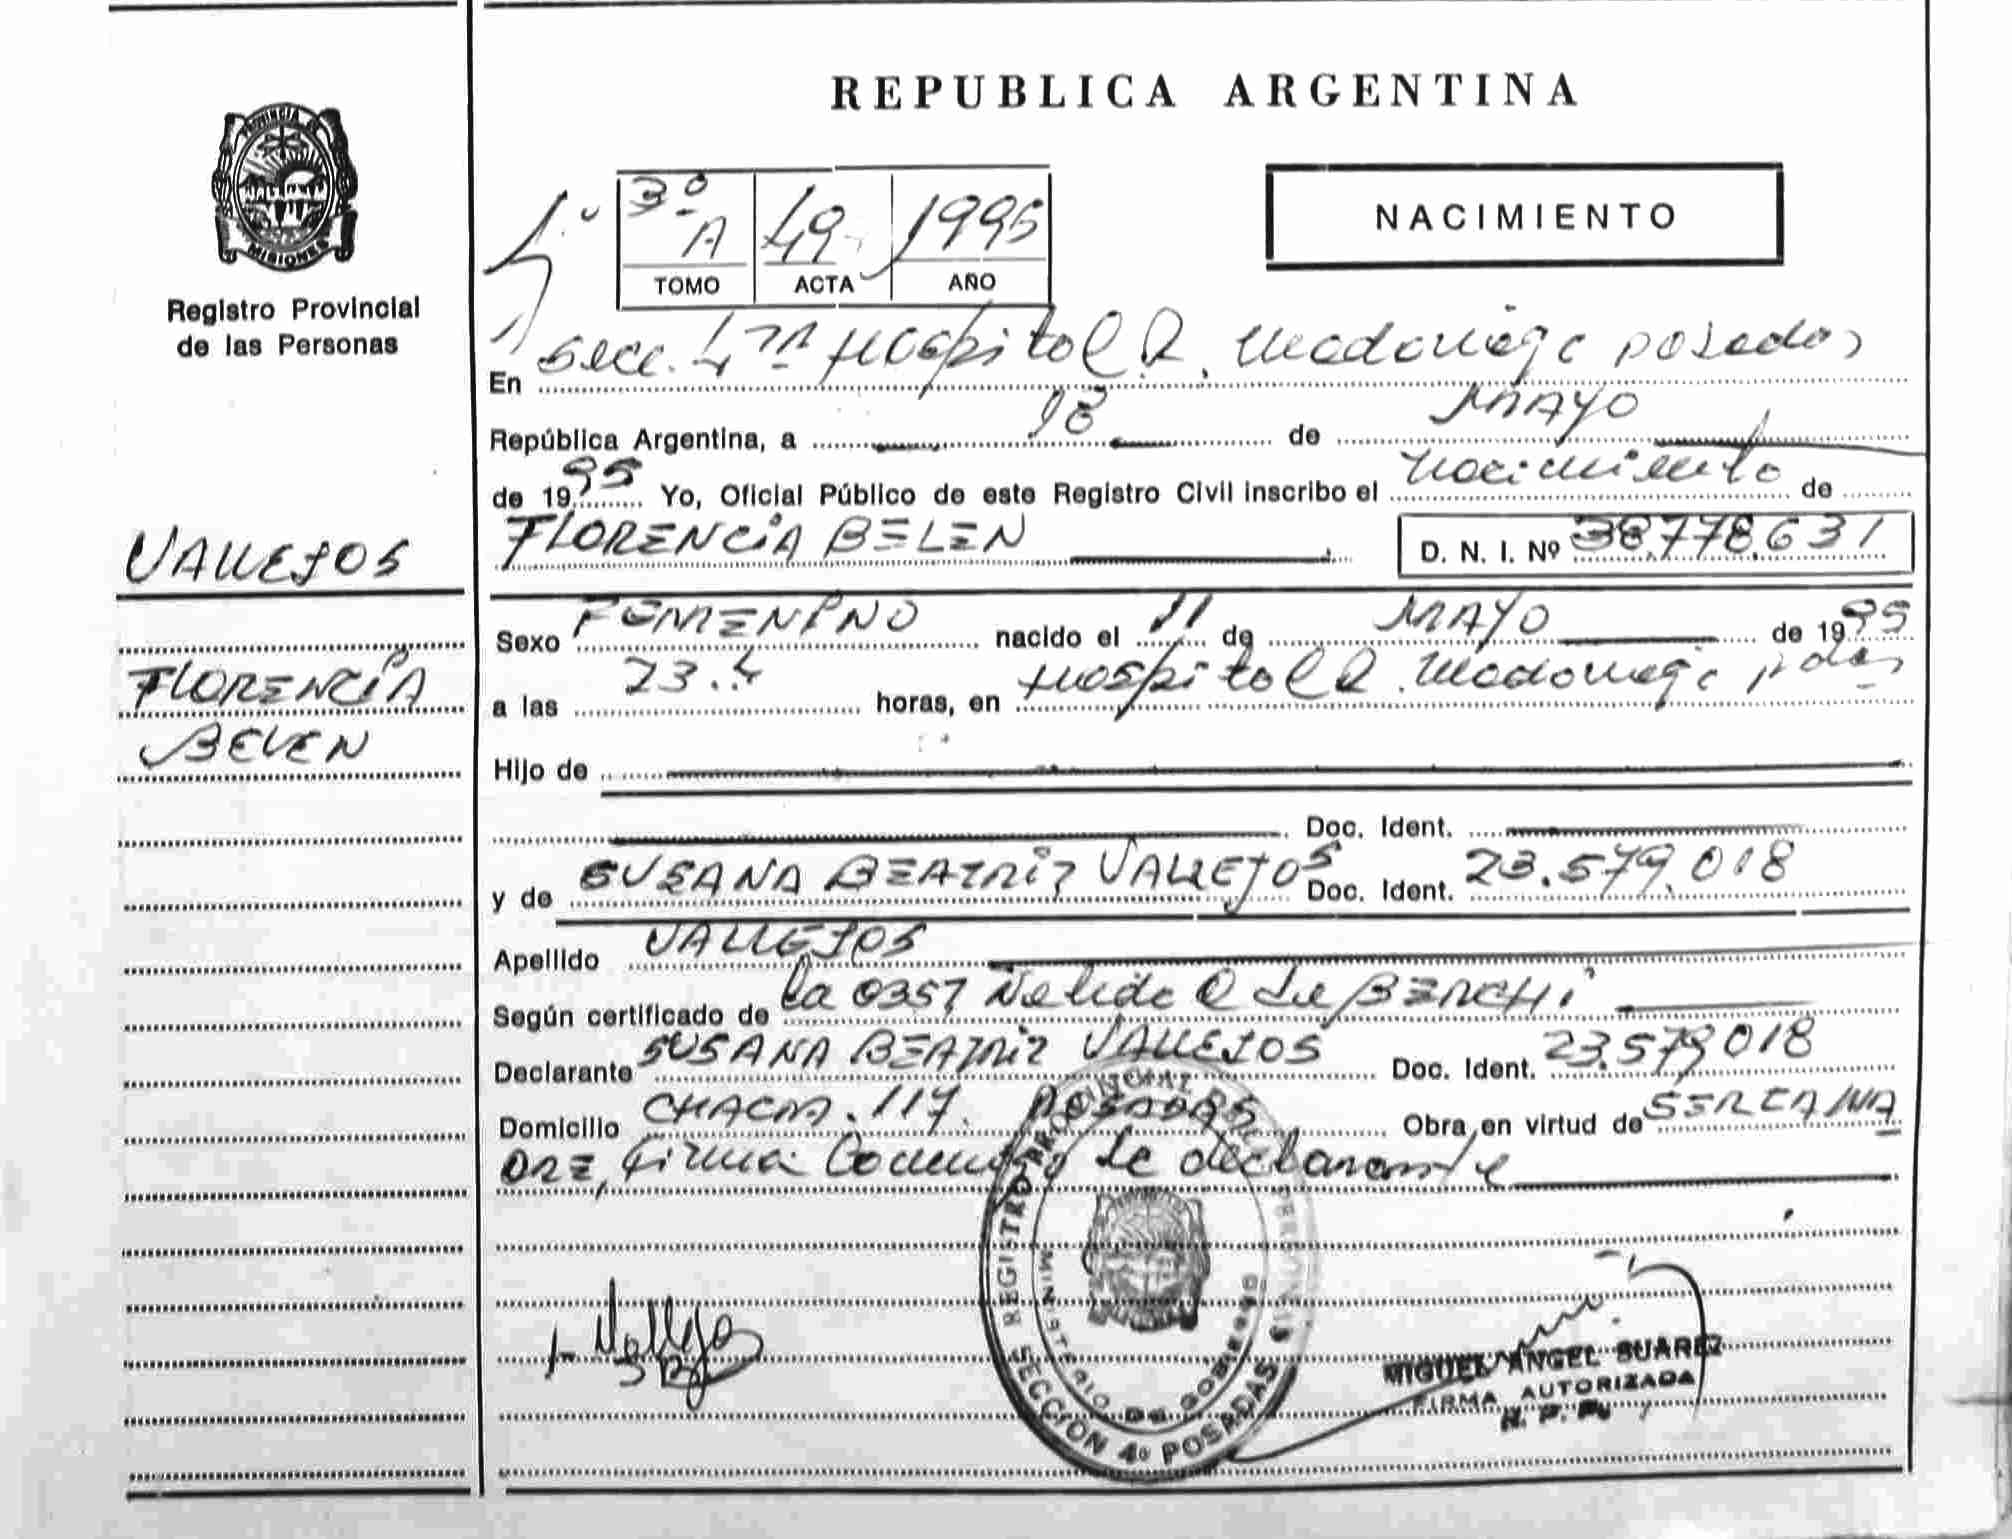 REPUBLICA ARGENTINA
PROVINCIA DE
MISIONES
Registro Provincial
de las Personas
3º A 49 1995
TOMO ACTA AÑO
NACIMIENTO
En Secc. 4ta Hospital R. Madariaga posadas
República Argentina, a 18 de MAYO
de 1995 Yo, Oficial Público de este Registro Civil inscribo el nacimiento de
FLORENCIA BELEN D. N. I. Nº 38.778.631
VALLEJOS
FLORENCIA
BELEN
Sexo FEMENINO nacido el 11 de MAYO de 1995
a las 23.4 horas, en Hospital R. Madariaga pdas
Hijo de
Doc. Ident.
y de SUSANA BEATRIZ VALLEJOS Doc. Ident. 23.579.018
Apellido VALLEJOS
Según certificado de la 0357 Nelida
Declarante SUSANA BEATRIZ VALLEJOS Doc. Ident. 23.579.018
Domicilio CHACRA 117. POSADAS Obra en virtud de SER LA MA
DRE, firma la declarante
Vallejos
REGISTRO PROVINCIAL DE
MINISTERIO DE GOBIERNO
SECCION 4º POSADAS
MIGUEL ANGEL SUAREZ
FIRMA AUTORIZADA
R. P. P.